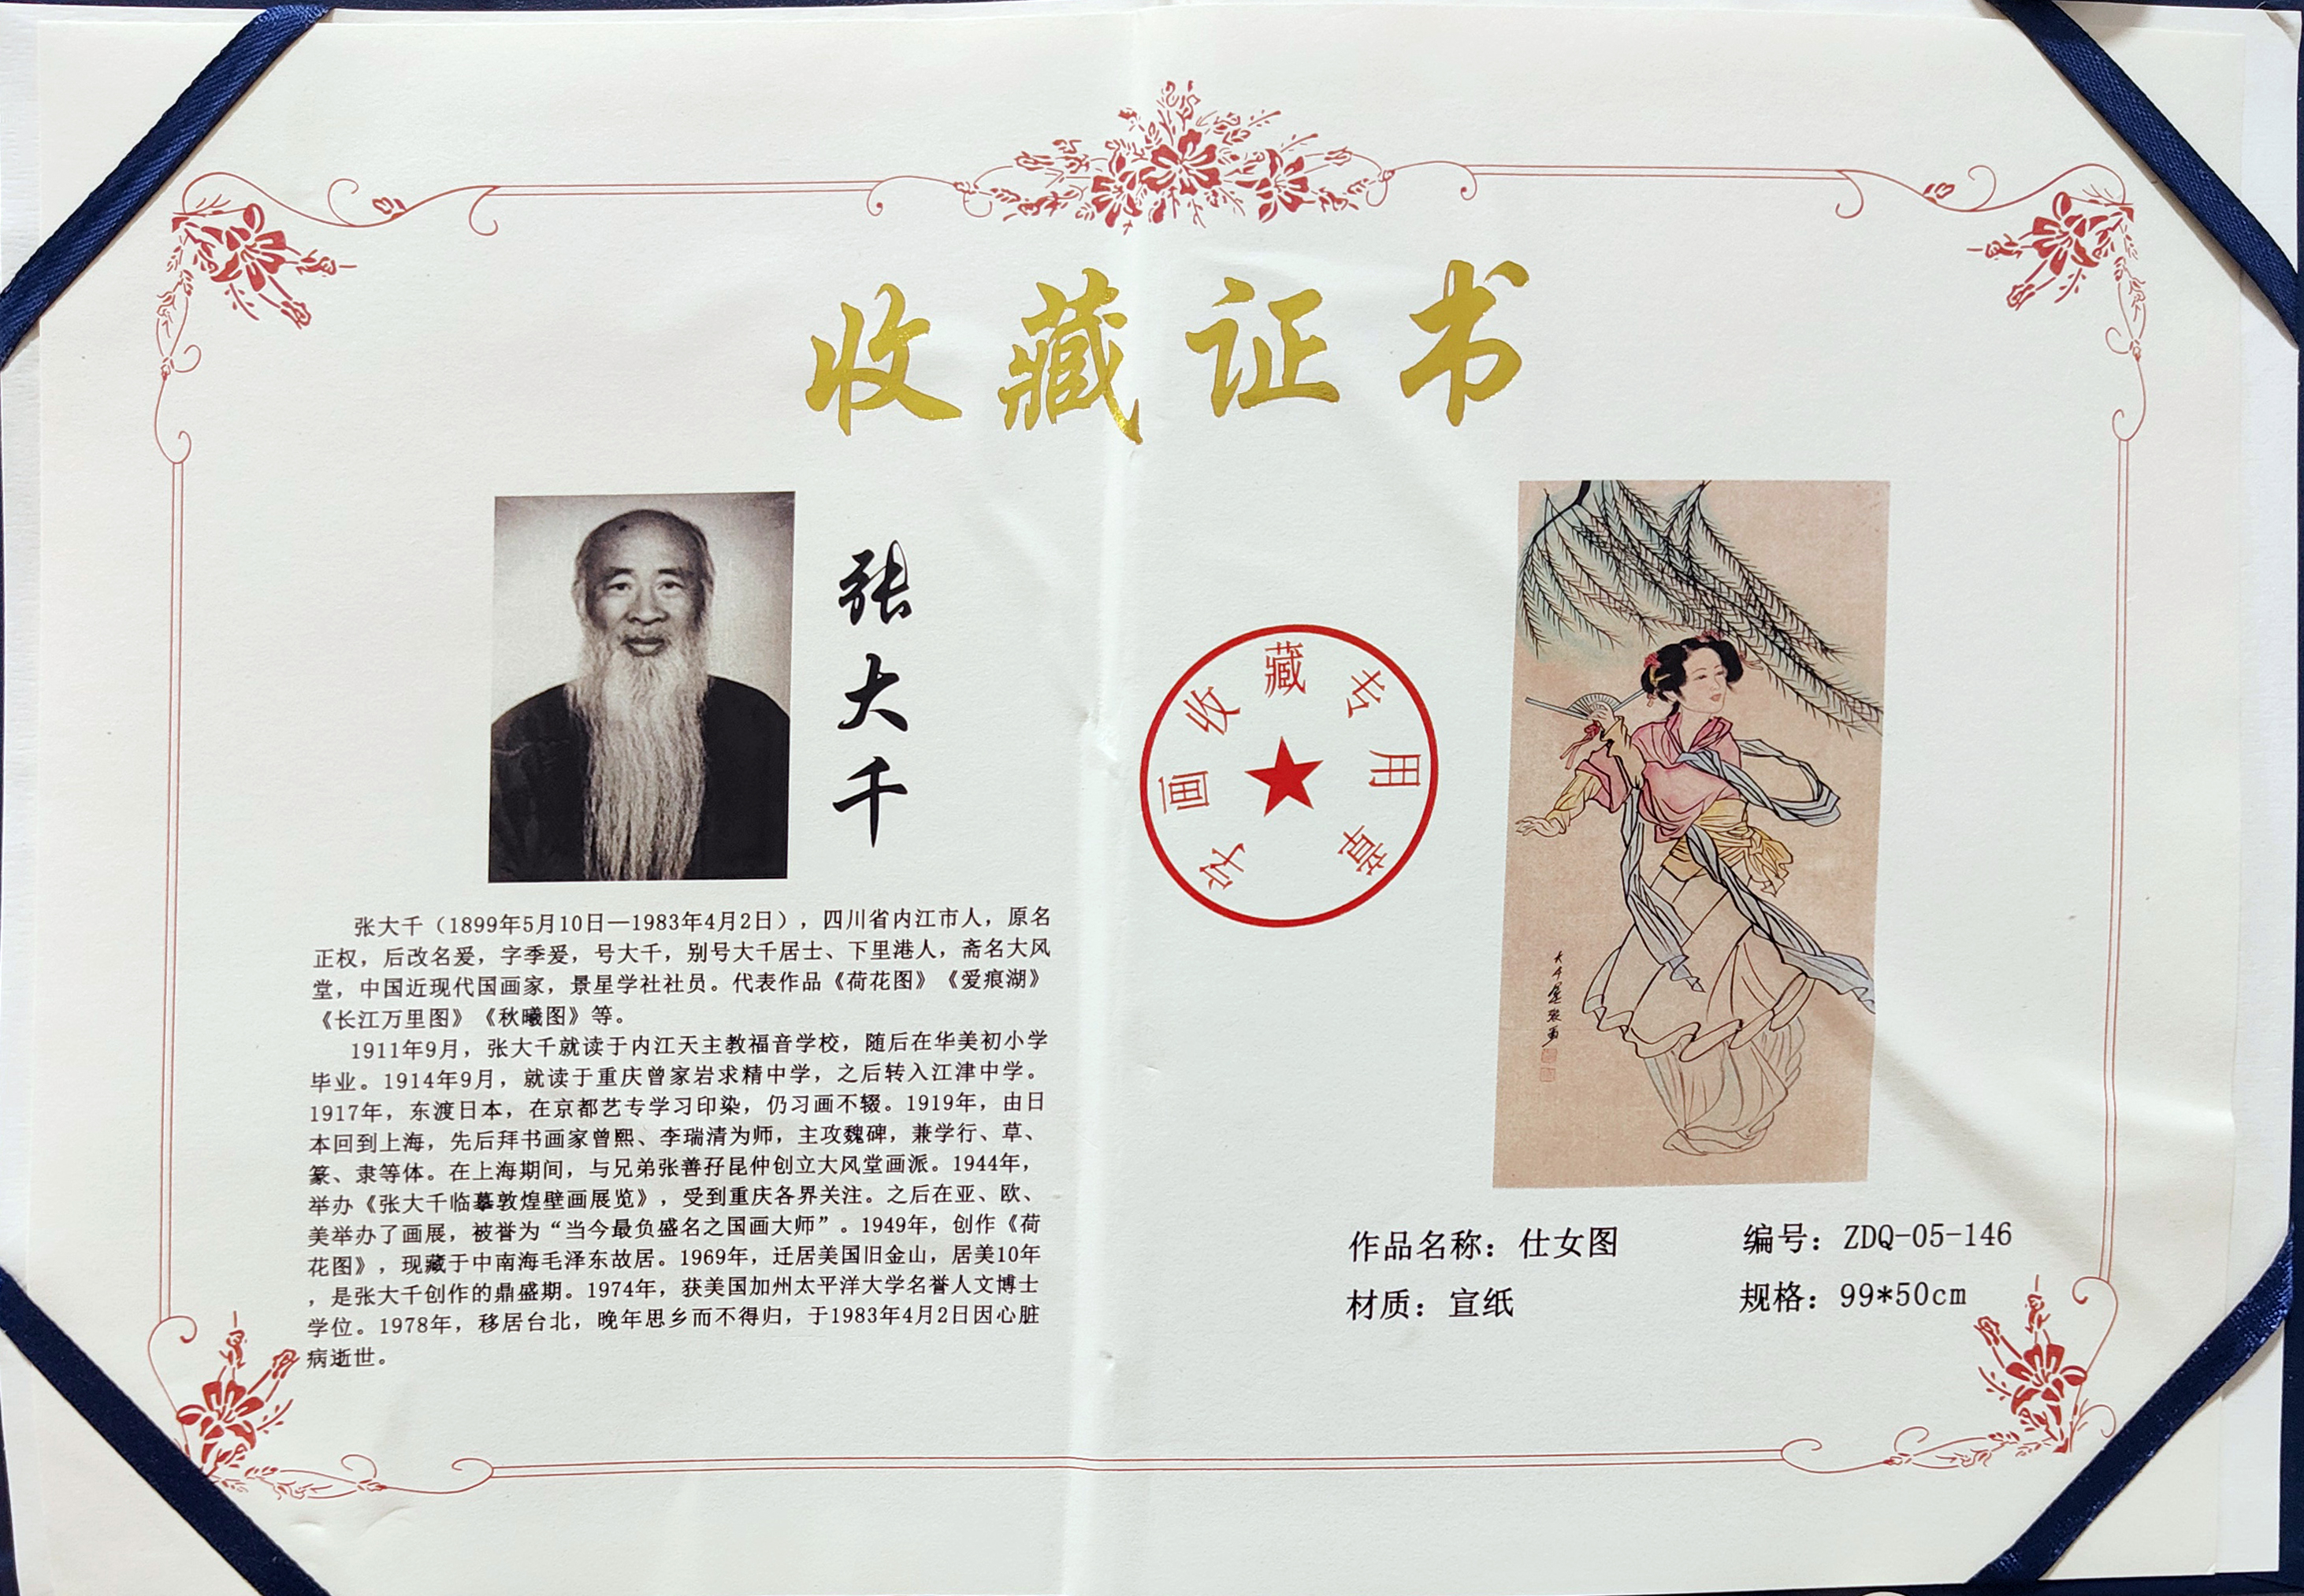 收藏证书
张大千
张大千（1899年5月10日—1983年4月2日），四川省内江市人，原名
正权，后改名爰，字季爰，号大千，别号大千居士、下里港人，斋名大风
堂，中国近现代国画家，景星学社社员。代表作品《荷花图》《爱痕湖》
《长江万里图》《秋曦图》等。
1911年9月，张大千就读于内江天主教福音学校，随后在华美初小学
毕业。1914年9月，就读于重庆曾家岩求精中学，之后转入江津中学。
1917年，东渡日本，在京都艺专学习印染，仍习画不辍。1919年，由日
本回到上海，先后拜书画家曾熙、李瑞清为师，主攻魏碑，兼学行、草、
篆、隶等体。在上海期间，与兄弟张善孖昆仲创立大风堂画派。1944年，
举办《张大千临摹敦煌壁画展览》，受到重庆各界关注。之后在亚、欧、
美举办了画展，被誉为“当今最负盛名之国画大师”。1949年，创作《荷
花图》，现藏于中南海毛泽东故居。1969年，迁居美国旧金山，居美10年
，是张大千创作的鼎盛期。1974年，获美国加州太平洋大学名誉人文博士
学位。1978年，移居台北，晚年思乡而不得归，于1983年4月2日因心脏
病逝世。
字画收藏专用章
作品名称：仕女图
编号：ZDQ-05-146
材质：宣纸
规格：99*50cm